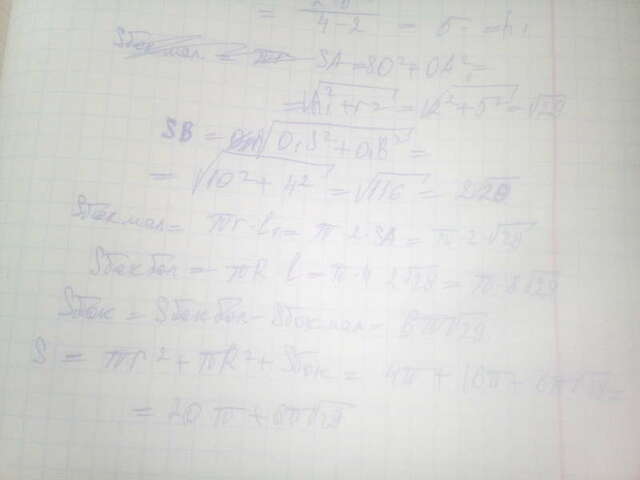 = —— / 4-2 = 5 = h₁
SA = SO² + OA² =
= √h₁² + r² = √2² + 5² = √29
SB = √O₁S² + O₁B² =
= √10² + 4² = √116 = 2√29
Sбок мал = πr · l₁ = π · 2 · SA = π · 2 · √29
Sбок бол = πR · l = π · 4 · 2√29 = π · 8√29
Sбок = Sбок бол - Sбок мал = 6π√29
S = πr² + πR² + Sбок = 4π + 16π + 6π√29 =
= 20π + 6π√29